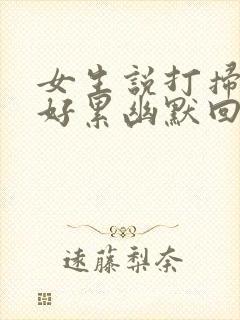 女生說打掃
好累幽默回
遠藤梨奈